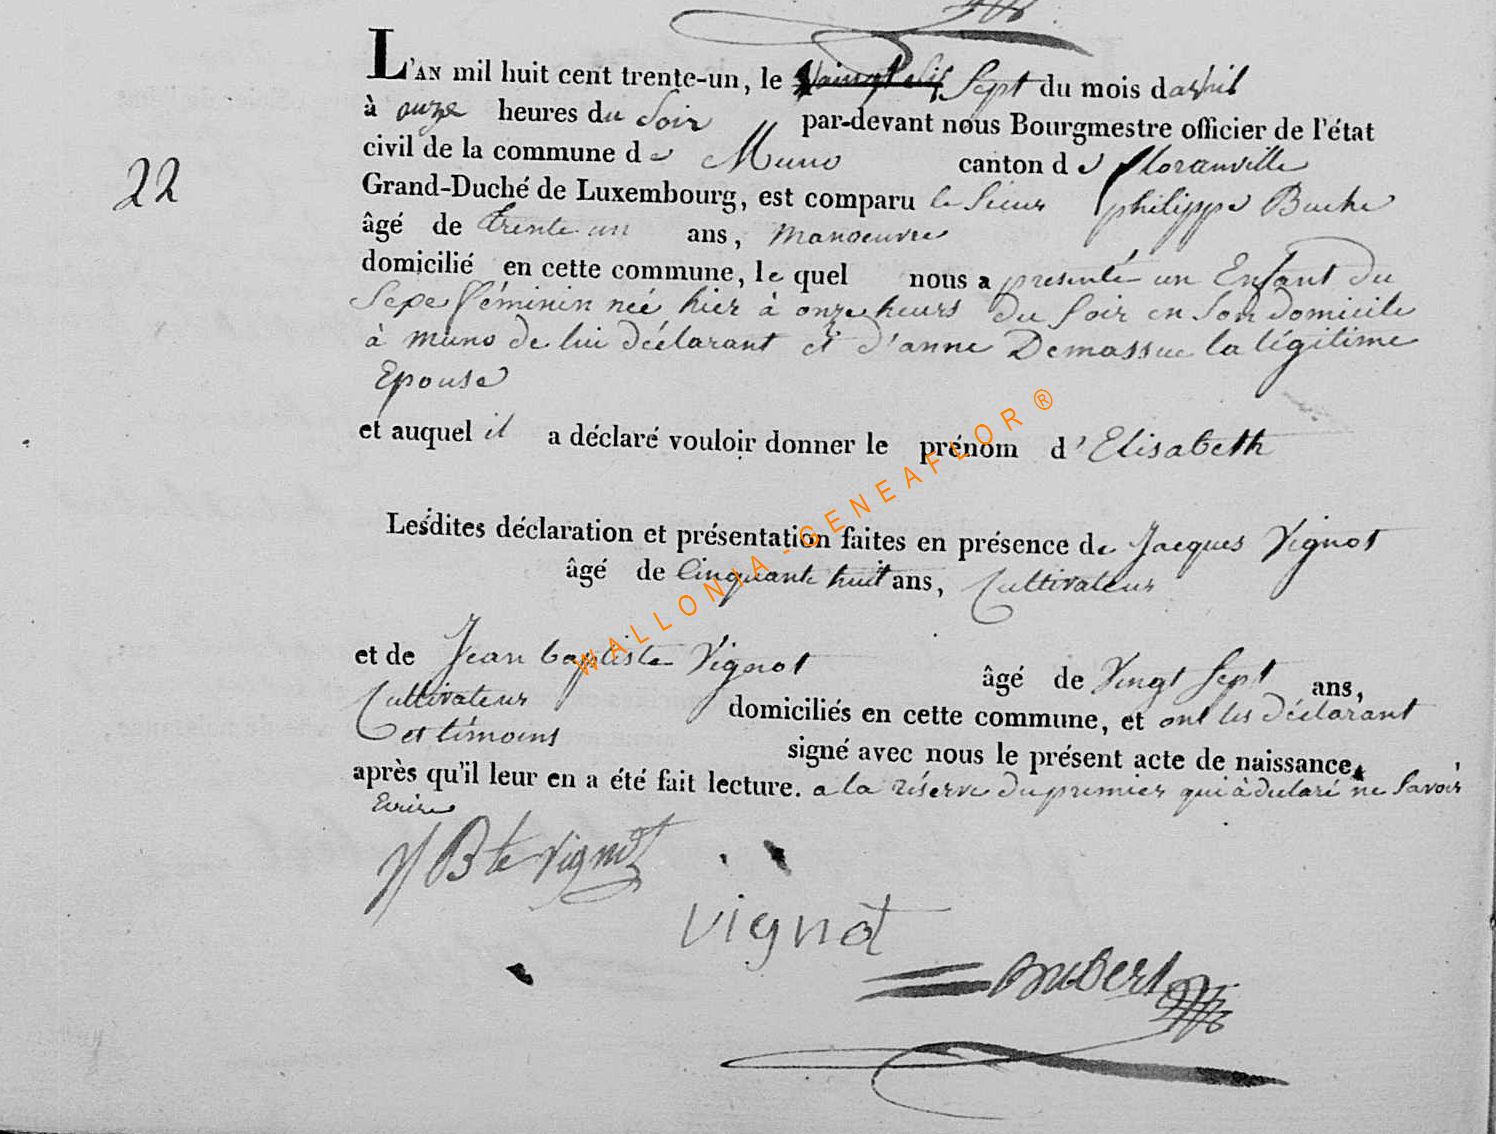 L'AN mil huit cent trente-un, le Sept du mois davril
à onze heures du Soir par-devant nous Bourgmestre officier de l'état
22
civil de la commune de Muno canton de floranville
Grand-Duché de Luxembourg, est comparu le Sieur philippe Buche
âgé de trente un ans, manoeuvre
domicilié en cette commune, lequel nous a presenté un Enfant du
Sexe féminin neé hier à onze heurs du Soir en Son domicile
à muno de lui déclarant et d'anne Demassue la légitime
Epouse
et auquel il a déclaré vouloir donner le prénom d'Elisabeth
Lesdites déclaration et présentation faites en présence de Jacques Vignot
âgé de Cinquante huit ans, Cultivateur
et de Jean baptiste Vignot âgé de Vingt Sept ans,
Cultivateur domiciliés en cette commune, et ont les déclarant
et témoins signé avec nous le présent acte de naissance,
après qu'il leur en a été fait lecture. a la réserve du premier qui à déclaré ne Savoir
Ecrire
JBte Vignot
vignot
Hubert
WALLONIA-GENEAFLOR®